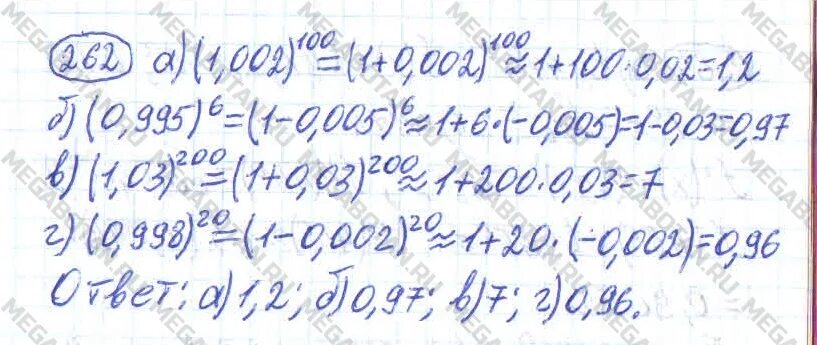 262 а) (1,002)^100 = (1+0,002)^100 ≈ 1+100·0,02=1,2
б) (0,995)^6 = (1-0,005)^6 ≈ 1+6·(-0,005)=1-0,03=0,97
в) (1,03)^200 = (1+0,03)^200 ≈ 1+200·0,03=7
г) (0,998)^20 = (1-0,002)^20 ≈ 1+20·(-0,002)=0,96
Ответ: а) 1,2; б) 0,97; в) 7; г) 0,96.
MEGABOTAN.RU